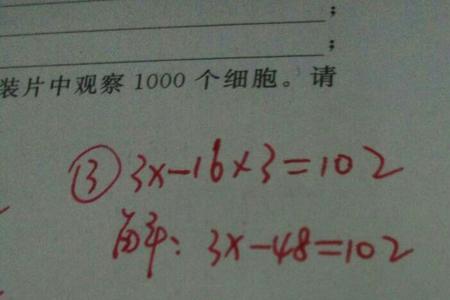 ；
；
装片中观察 1000 个细胞。请
③ 3x-16×3=102
解：3x-48=102